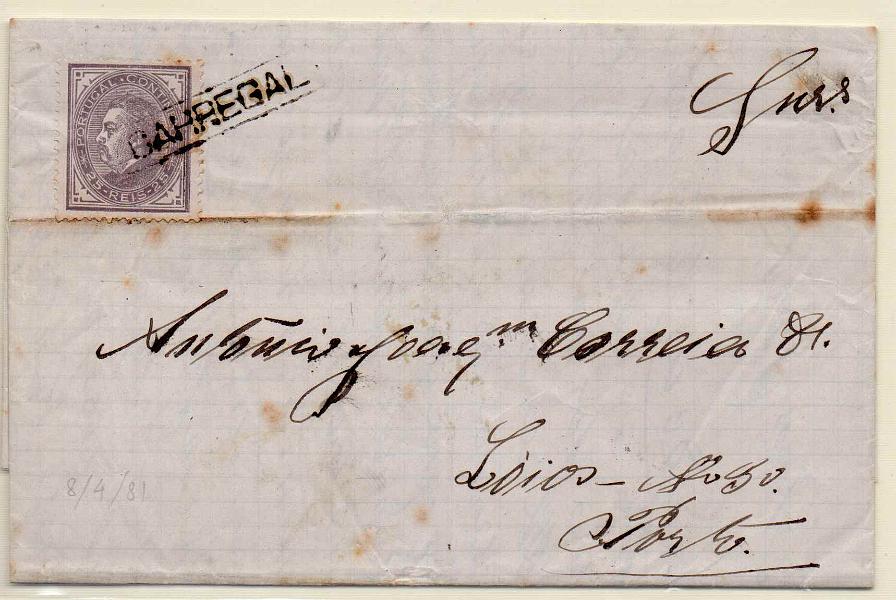 PORTUGAL · CONTINENTE
25 · REIS · 25
CARREGAL
Snrs
Antonio Joaqm Correia &.
Loios - No 30.
Porto.
8/4/81